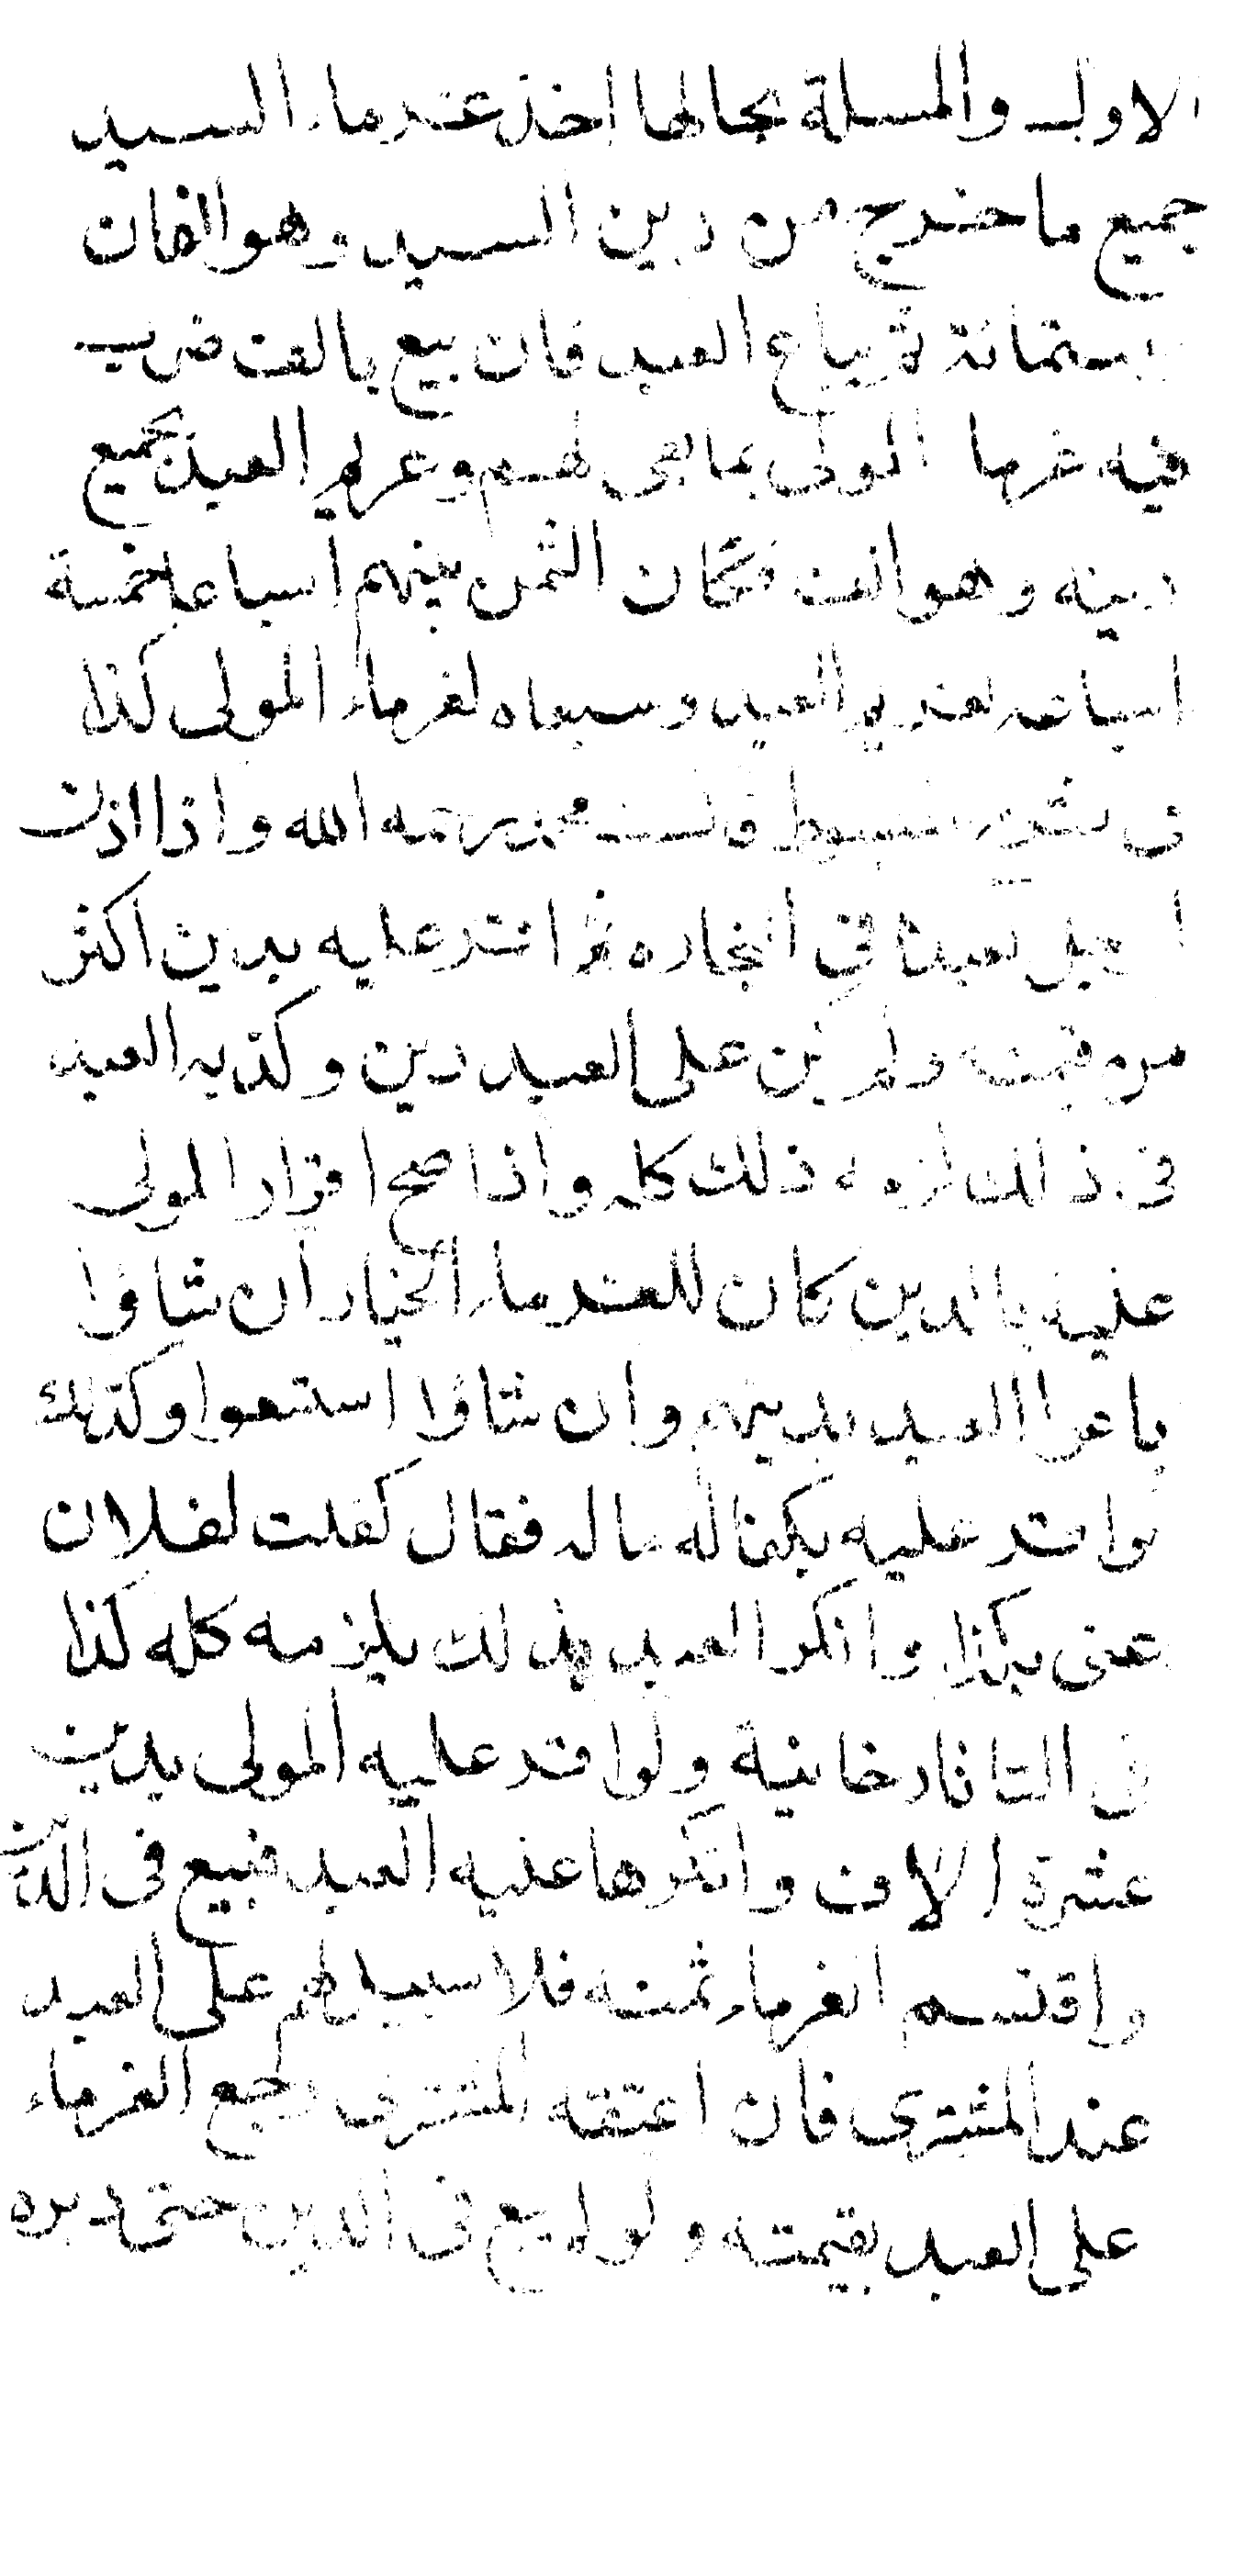 الاول والمسلة بحالها اخذ غرماء السيد
جميع ما خرج من دين السيد وهو الفان
وستمائة ثم يباع العبد فان بيع بالف ضرب
فيه غرما المولى بما بقى لهم وغريم العبد بجميع
دينه وهو الف فكان الثمن بينهم اسباعا خمسة
اسباعه لغريم العبد وسبعاه لغرماء المولى كذا
فى المبسوط قال محمد رحمه الله واذا اذن
ا جل لعبده فى التجاره ثم اقر عليه بدين اكثر
من قيمته ولم يكن على العبد دين وكذبه العبد
فى ذلك لزمه ذلك كله واذا صح اقرار المولى
عليه بالدين كان للغرماء الخيار ان شاؤا
باعوا العبد بدينهم وان شاؤا استسعوا وكذلك
لو اقر عليه بكفالة مال فقال كفلت لفلان
عنى بكذا وانكر العبد فذلك يلزمه كله كذا
فى التاتارخانية ولو اقر عليه المولى بدين
عشرة الاف وانكرها عليه العبد فبيع فى الدين
واقتسم الغرماء ثمنه فلا سبيل لهم على العبد
عند المشترى فان اعتقه المشترى رجع الغرماء
على العبد بقيمته ولو لم يبع فى الدين حتى دبره